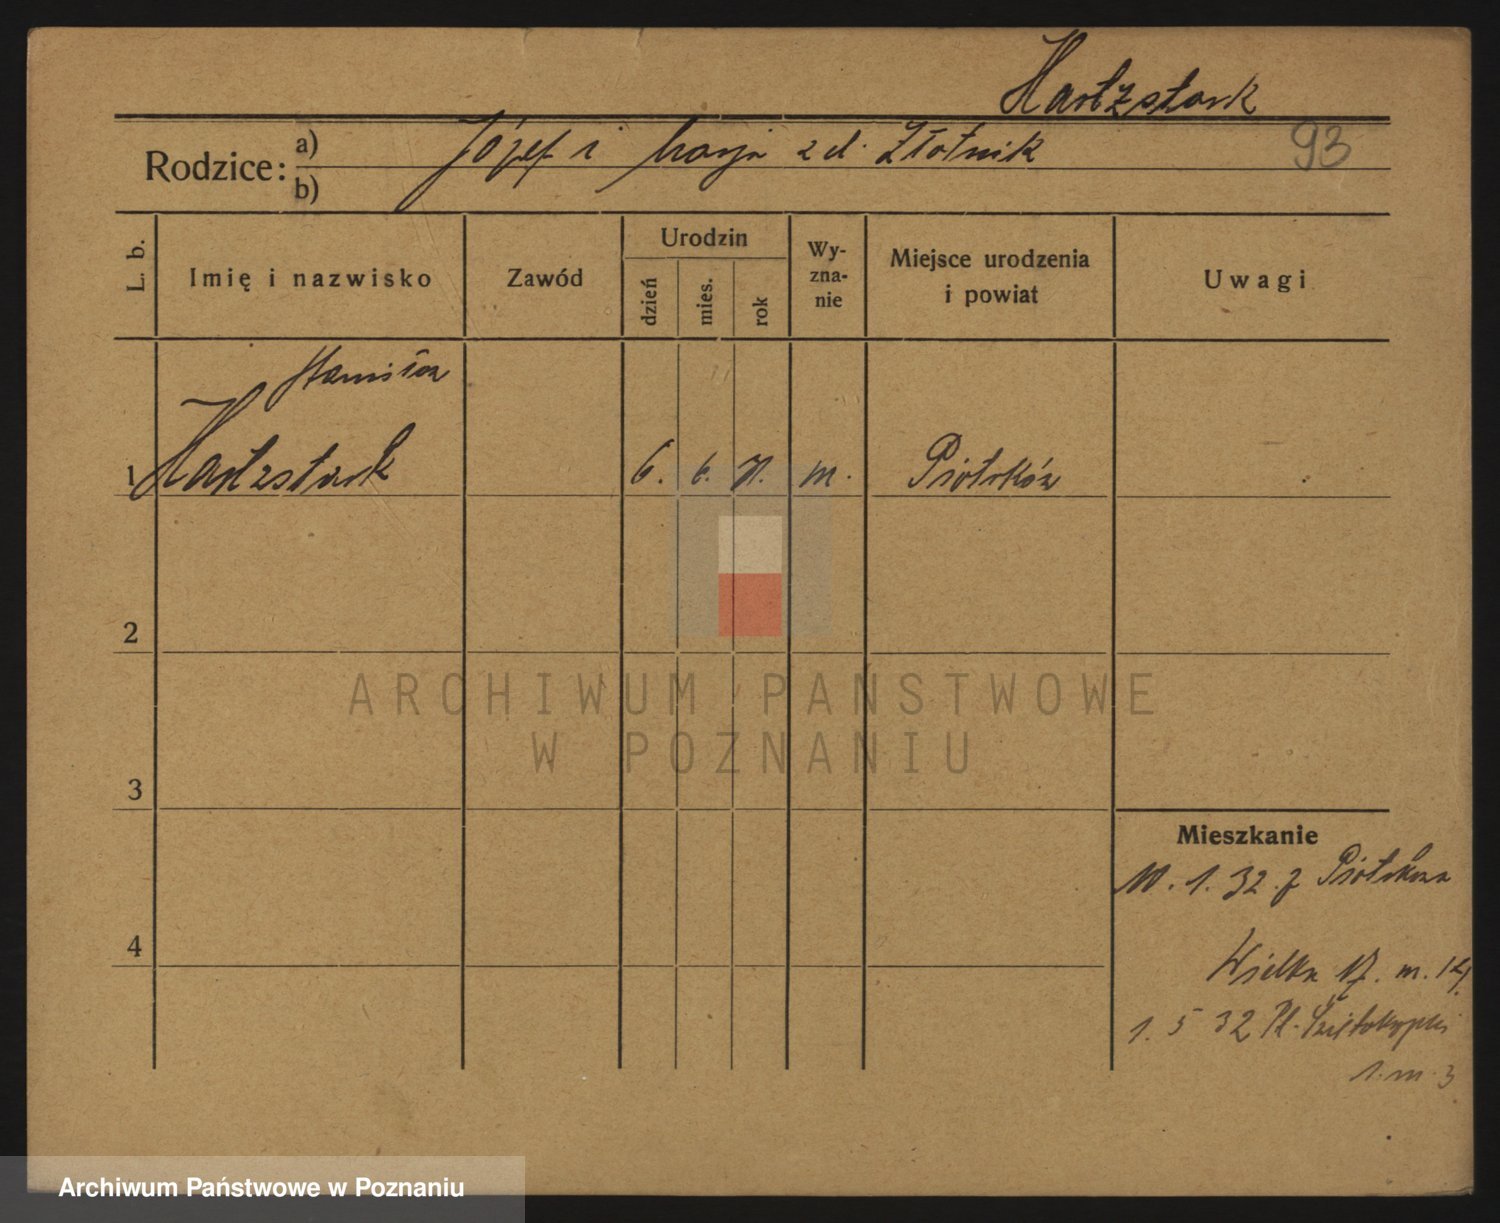 Hartzstark
93
Rodzice:
a) Józef i Marja z d. Złotnik
b)
L. b.
Imię i nazwisko
Zawód
Urodzin
dzień
mies.
rok
Wy-
zna-
nie
Miejsce urodzenia
i powiat
Uwagi
Stanisław
1 Hartzstark 6. 6. m. Piotrków
2
3
4
Mieszkanie
10. 1. 32 z Piotrkowa
Wielka 17. m. 14.
1. 5 32 Pl.
1. m. 3
ARCHIWUM PAŃSTWOWE
W POZNANIU
Archiwum Państwowe w Poznaniu